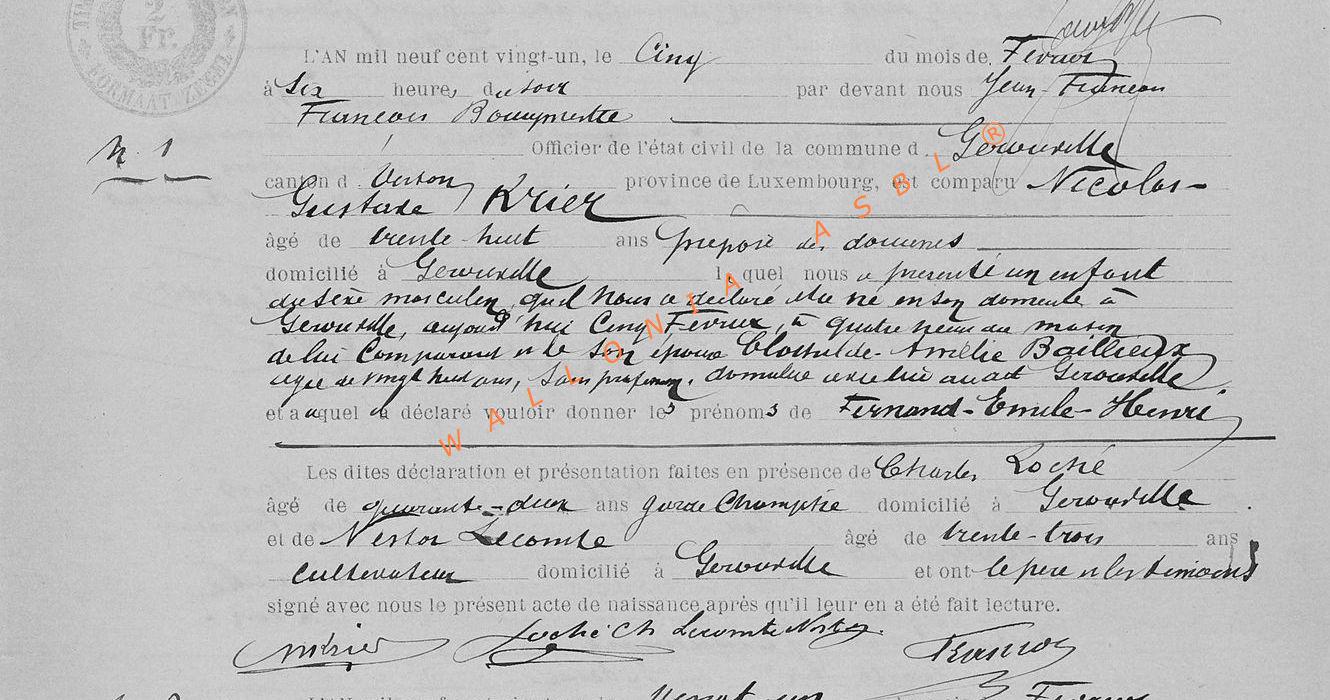 Fr.
FORMAAT ZEGEL
L'AN mil neuf cent vingt-un, le Cinq du mois de Février
à Six heures du soir par devant nous Jean-François
François
N. 1
Officier de l'état civil de la commune d Gerouville
canton d Virton province de Luxembourg, est comparu Nicolas-
Gustave Krier
âgé de trente-huit ans préposé des douanes
domicilié à Gerouville lequel nous a présenté un enfant
du sexe masculin, qu'il nous a déclaré être né en son domicile à
Gerouville, aujourd'hui Cinq Février, à quatre heures du matin
de lui Comparant et de son épouse Clothilde-Amélie Baillieux
agée de vingt huit ans, sans profession, domiciliée avec lui audit Gerouville
et auquel il a déclaré vouloir donner les prénoms de Fernand-Emile-Henri
Les dites déclaration et présentation faites en présence de Charles Roché
âgé de quarante-deux ans garde Champêtre domicilié à Gerouville
et de Nestor Lecomte âgé de trente-trois ans
Cultivateur domicilié à Gerouville et ont le père et les témoins
signé avec nous le présent acte de naissance après qu'il leur en a été fait lecture.
NKrier Roché Ch Lecomte Nestor François
L'AN mil neuf cent vingt-un
WALLONIA ASBL ®